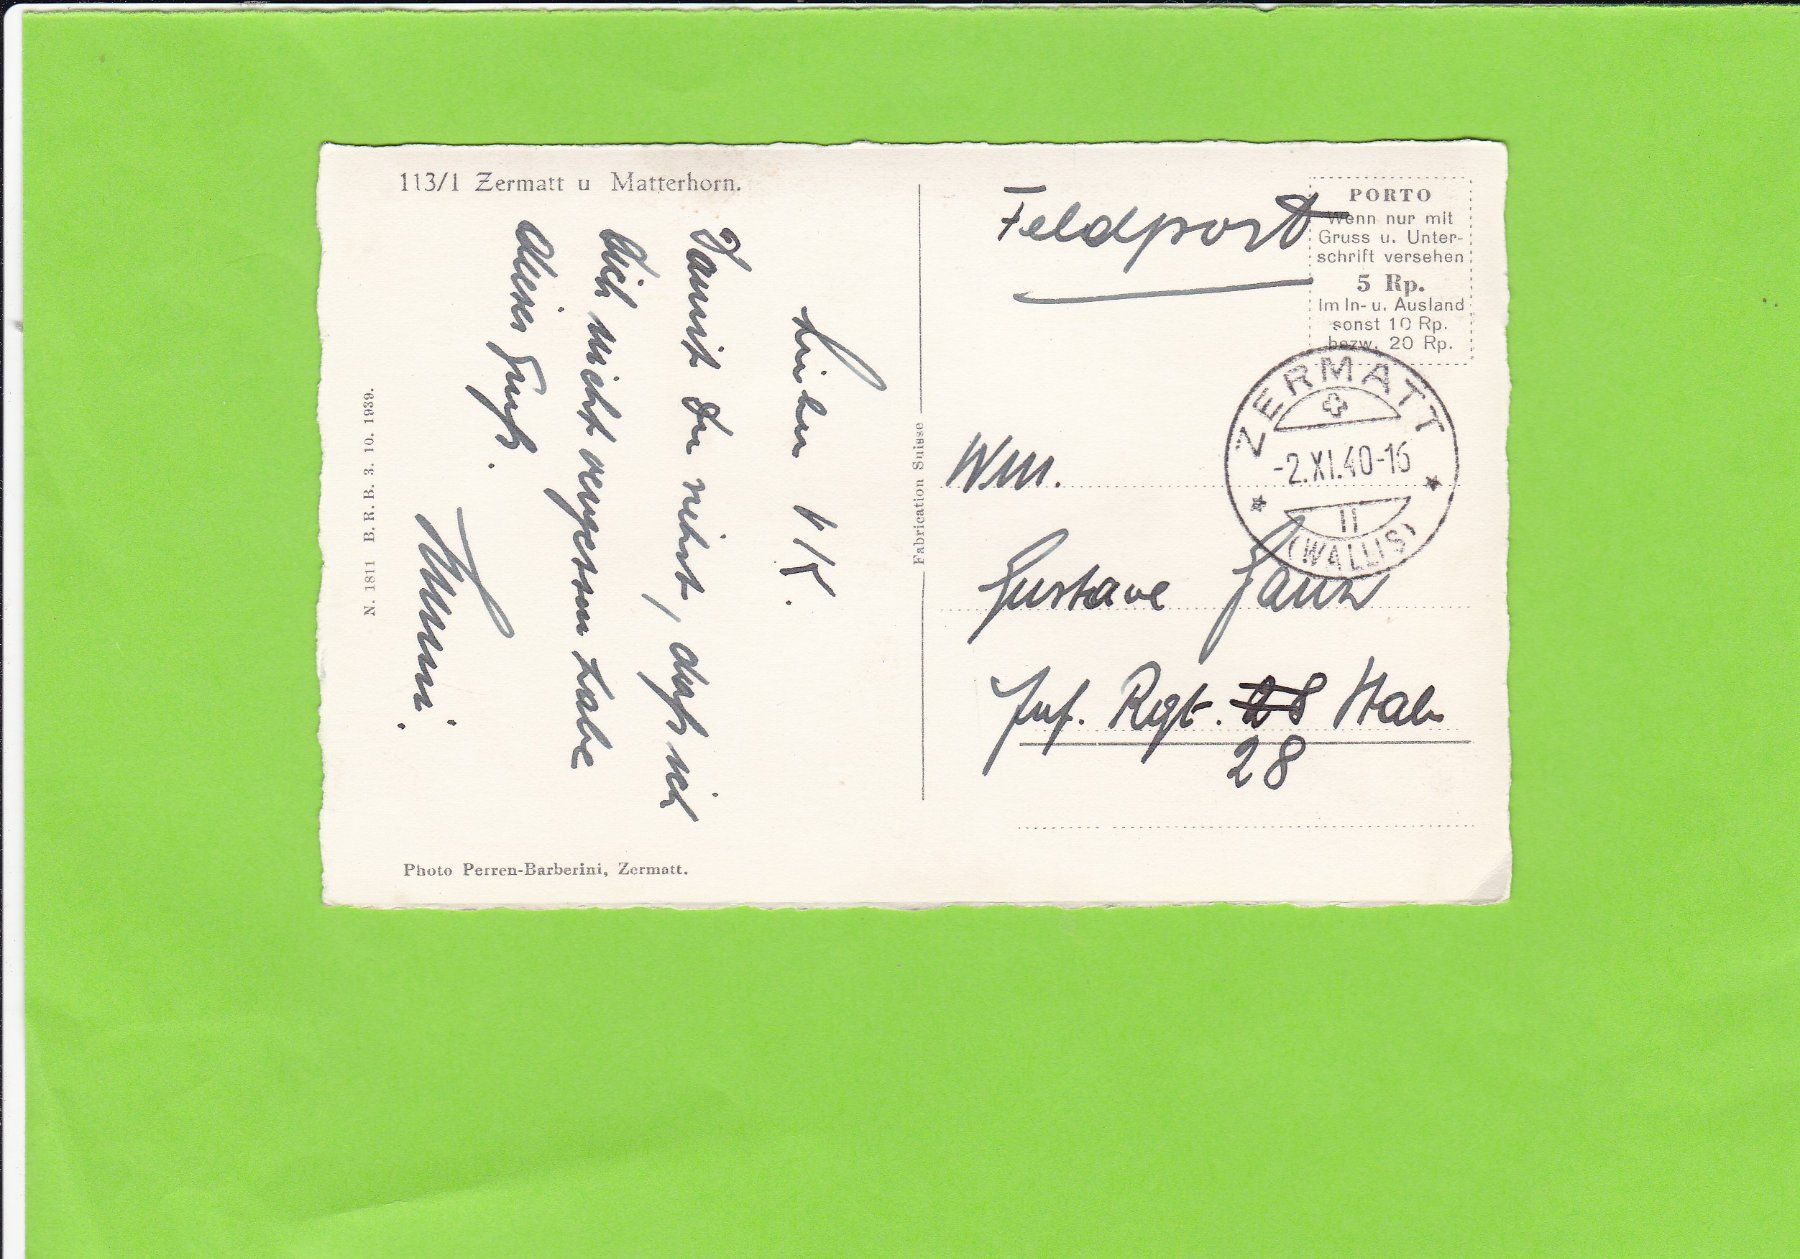 113/1 Zermatt u Matterhorn.
Damit Du siehst, dass ich
Dich nicht vergessen habe
dieser Gruss.
N. 1811 B. R. B. 3. 10. 1939.
Photo Perren-Barberini, Zermatt.
Fabrication Suisse
Feldpost
PORTO
Wenn nur mit
Gruss u. Unter-
schrift versehen
5 Rp.
Im In- u. Ausland
sonst 10 Rp.
bezw. 20 Rp.
ZERMATT
-2.XI.40-16
II
(WALLIS)
Wm.
Gustave Ganz
Inf. Rgt. 28 Stab
28